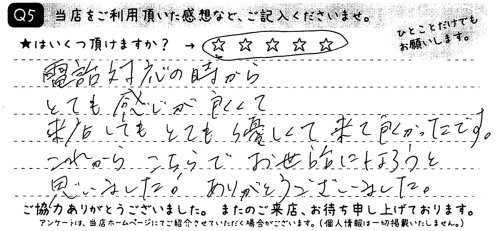 Q5 当店をご利用頂いた感想など、ご記入くださいませ。
★はいくつ頂けますか？ → ☆ ☆ ☆ ☆ ☆
ひとことだけでも
お願いします。
電話対応の時から
とても感じが良くて
来店してもとても優しくて来て良かったです。
これからこちらでお世話になろうと
思いました。ありがとうございました。
ご協力ありがとうございました。またのご来店、お待ち申し上げております。
アンケートは、当店ホームページにてご紹介させていただく場合がございます。（個人情報は一切掲載いたしません。）